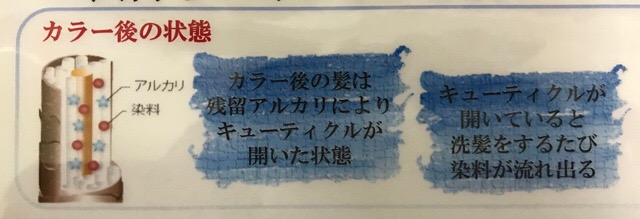 カラー後の状態
アルカリ
染料
カラー後の髪は
残留アルカリにより
キューティクルが
開いた状態
キューティクルが
開いていると
洗髪をするたび
染料が流れ出る